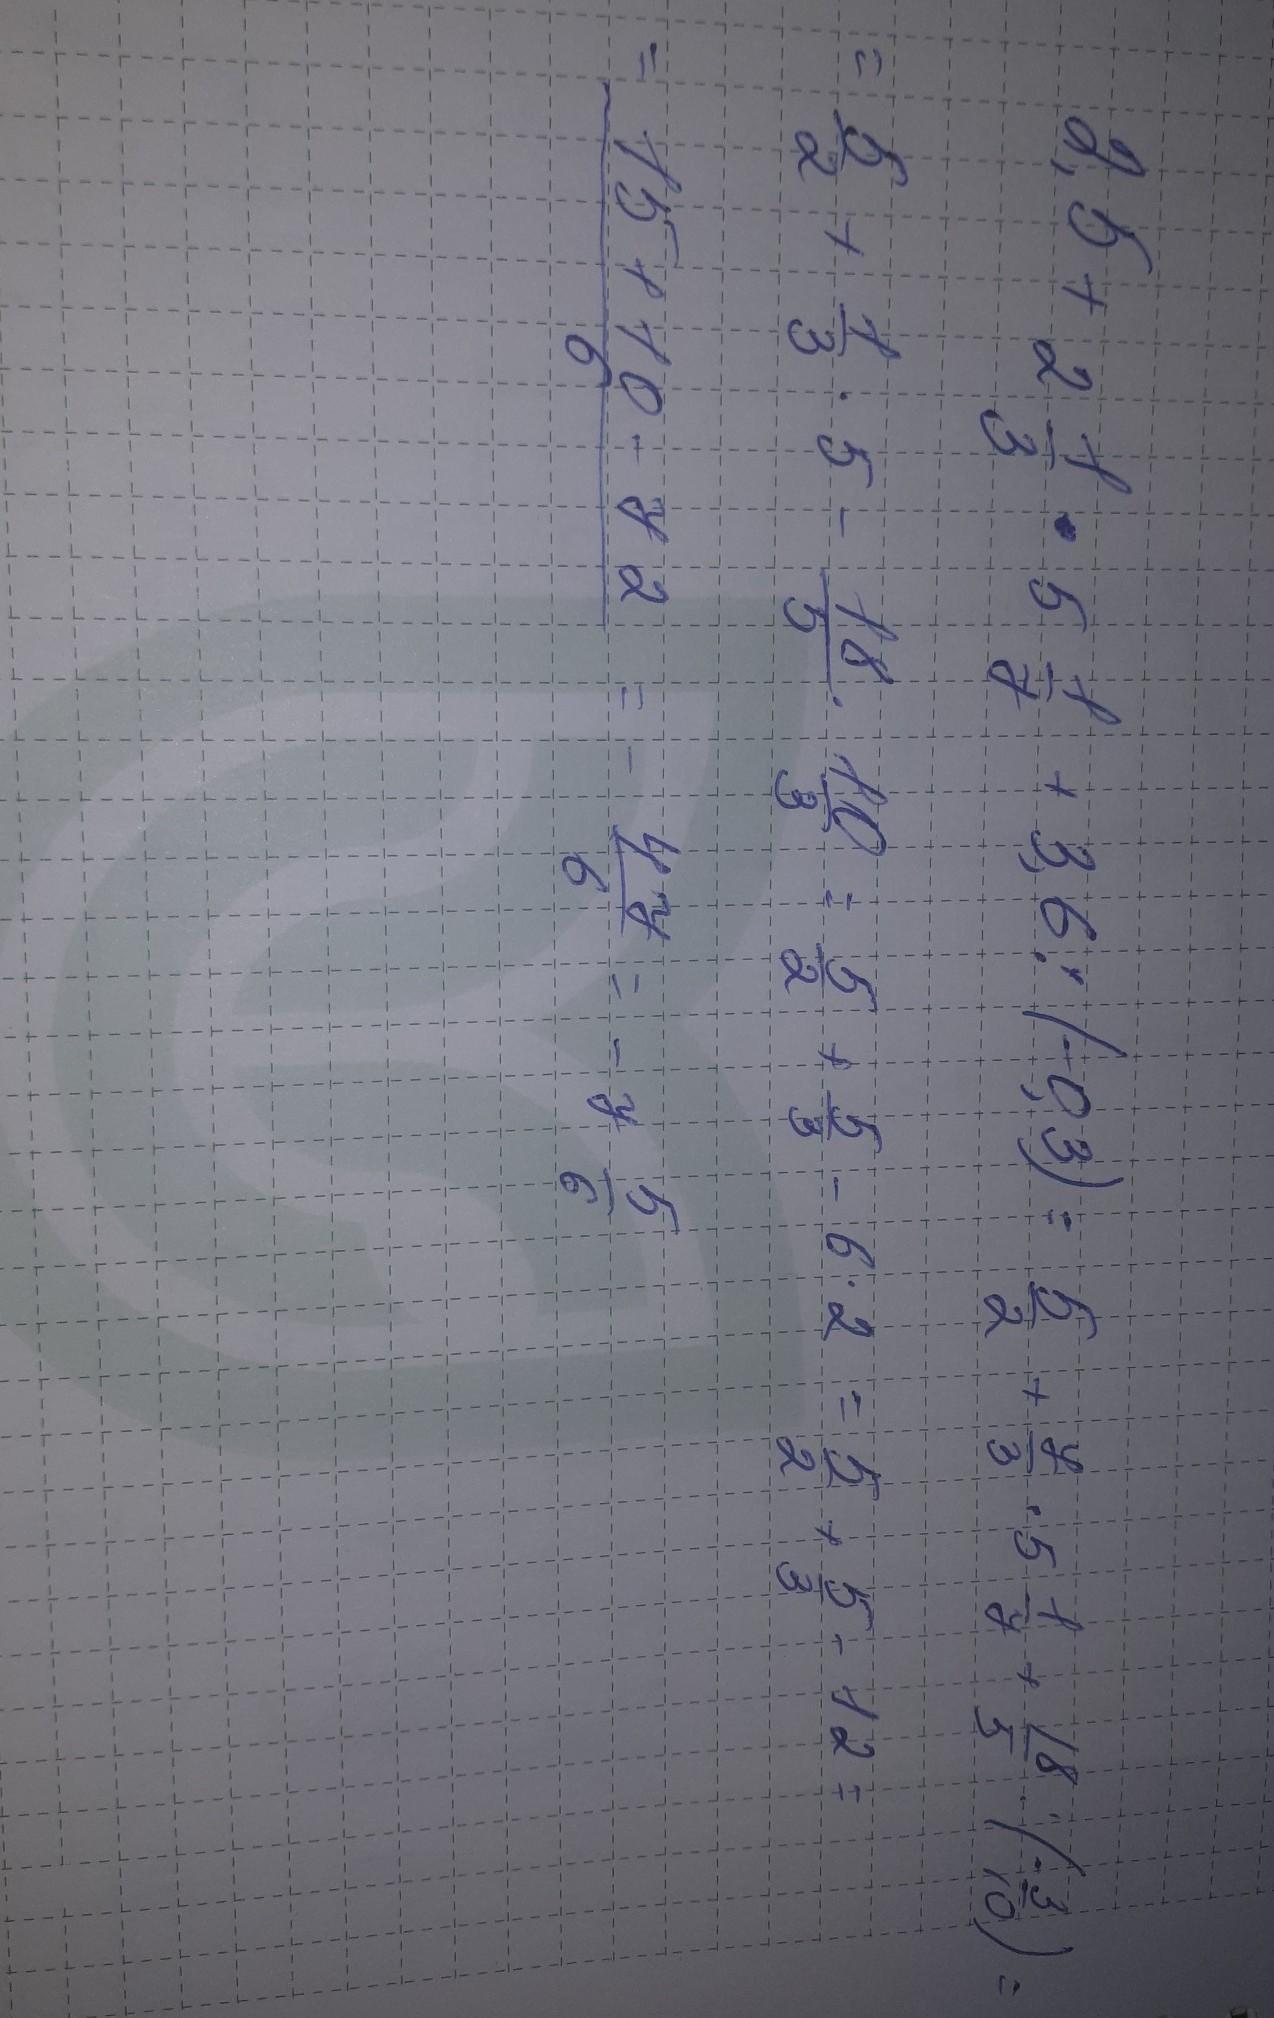 2,5 + 2 1/3 · 5 1/7 + 3,6 : (-0,3) = 5/2 + 7/3 · 5 1/7 + 18/5 : (-3/10) =
= 5/2 + 1/3 · 5 - 18/5 · 10/3 = 5/2 + 5/3 - 6 · 2 = 5/2 + 5/3 - 12 =
= 15 + 10 - 72/6 = - 47/6 = - 7 5/6